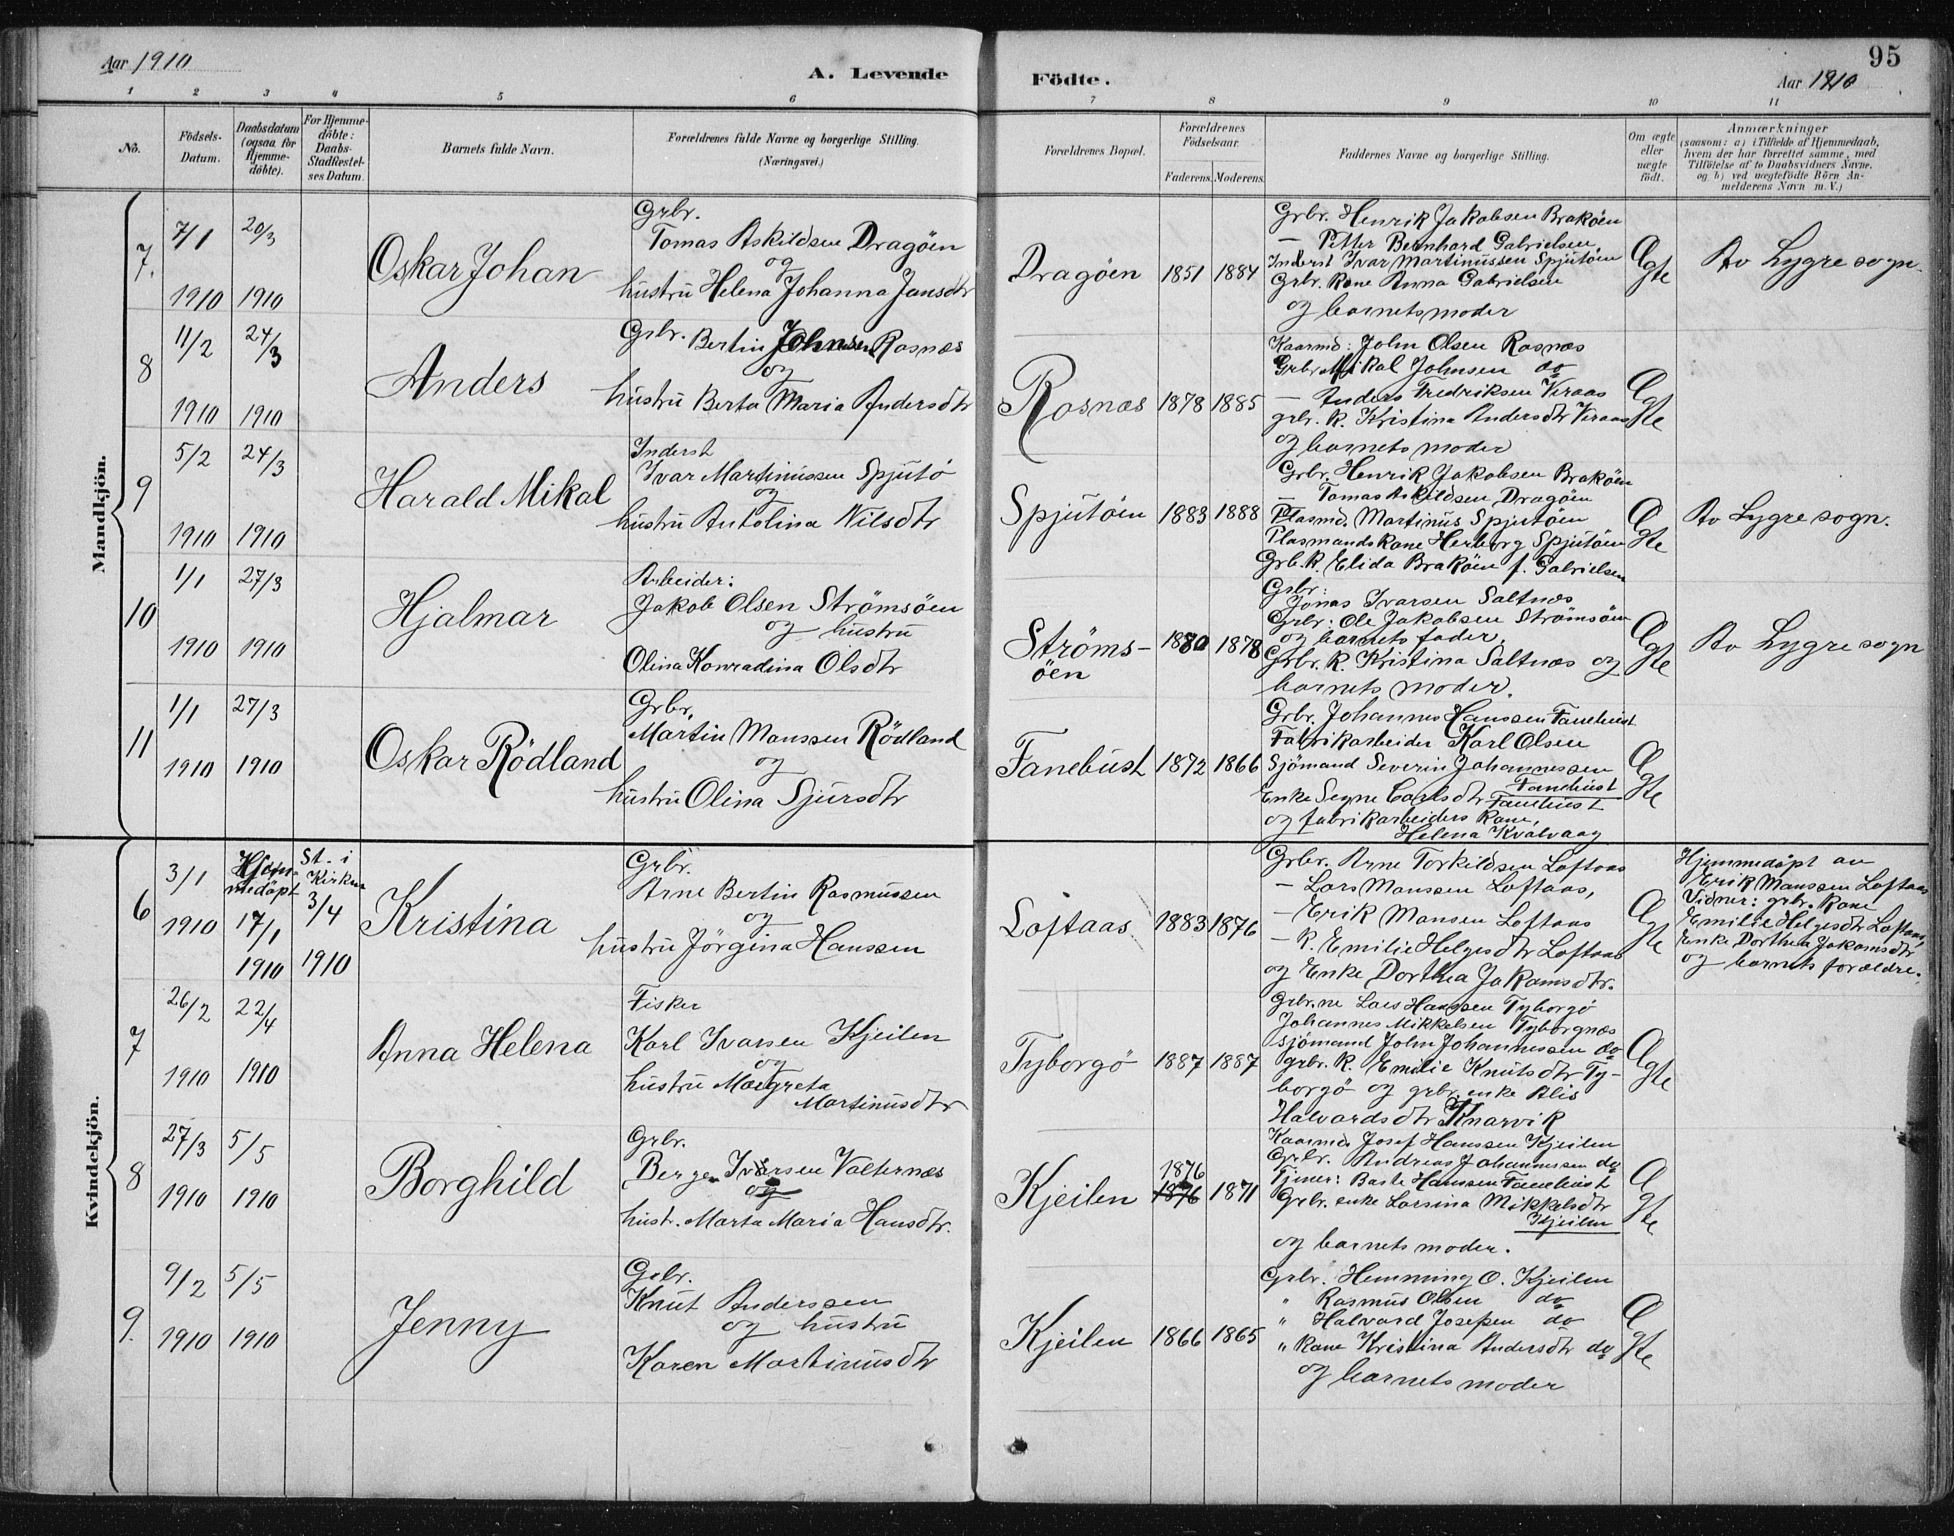 Aar 1910
A. Levende
Födte.
95
Aar 1910
1 2 3 4 5 6 7 8 9 10 11
No.
Födsels-
Datum.
Daabsdatum
(ogsaa for
Hjemme-
döbte).
For Hjemme-
döbte:
Daabs-
Stadfæstel-
ses Datum.
Barnets fulde Navn.
Forældrenes fulde Navne og borgerlige Stilling.
(Næringsvei.)
Forældrenes Bopæl.
Forældrenes
Födselsaar.
Faderens. Moderens.
Faddernes Navne og borgerlige Stilling.
Om ægte
eller
uægte
födt.
Anmærkninger
(saasom: a) i Tilfælde af Hjemmedaab,
hvem der har forrettet samme, med
Tilföielse af to Daabsvidners Navne,
og b) ved uægtefödte Börn An-
melderens Navn m. V.)
Mandkjön.
7.
7/1
1910
20/3
1910
Oskar Johan
Grbr.
Tomas Askildsen Dragöen
og
hustru Helena Johanna Jansdtr
Dragöen
1851
1884
Grbr. Henrik Jakobsen Braköen
— Petter Bernhard Gabrielsen,
Inderst Ivar Martinussen Spjutöen
Grbr. Kone Anna Gabrielsen
og barnets moder
Ægte
Av Lygre sogn.
8
11/2
1910
24/3
1910
Anders
Grbr. Bertin Johnsen Rosnæs
og
hustru Berta Maria Andersdtr
Rosnæs
1878
1885
Kaarmd: John Olsen Rosnæs
Grbr Mikal Johnsen do
— Anders Fredriksen Veraas
grbr. K. Kristina Andersdtr Veraas
og barnets moder
Ægte
9
5/2
1910
24/3
1910
Harald Mikal
Inderst
Ivar Martinussen Spjutö
og
hustru Antolina Nilsdtr
Spjutöen
1883
1888
Grbr. Henrik Jakobsen Braköen
— Tomas Askildsen Dragöen
Plasmd. Martinus Spjutöen
Plasmands kone Herborg Spjutöen
Grb. K. Elida Braköen f. Gabrielsen
Ægte
Av Lygre sogn.
10
1/1
1910
27/3
1910
Hjalmar
Arbeider:
Jakob Olsen Strömsöen
og hustru
Olina Konradina Olsdtr
Ströms-
öen
1880
1878
Grbr:
Jonas Ivarsen Saltnæs
Grbr: Ole Jakobsen Strömsöen
og barnets fader.
Grbr. K. Kristina Saltnæs og
barnets moder.
Ægte
Av Lygre sogn
11
1/1
1910
27/3
1910
Oskar Rödland
Grbr,
Martin Monssen Rödland
og
hustru Olina Sjursdtr
Fanebust
1872
1866
Grbr. Johannes Hanssen Fanebust
Fabrikarbeider Karl Olsen
Sjömand Severin Johannessen
Fanebust
Enke Segne Carlsdtr Fanebust
og fabrikarbeiders kone,
Helena Kvalvaag
Ægte
Kvindekjön.
6
3/1
1910
Hjem-
medöpt
17/1
1910
St. i
Kirken
3/4
1910
Kristina
Grbr.
Arne Bertin Rasmussen
og
hustru Jörgina Hanssen
Loftaas
1883
1876
Grbr. Arne Torkildsen Loftaas
— Lars Monssen Loftaas,
— Erik Monsen Loftaas
— K. Emilie Helgesdtr Loftaas
og Enke Dorthea Jakomsdtr.
Ægte
Hjemmedöpt av
Erik Monssen Loftaas
Vidner: grbr. kone
Emilie Helgesdtr Loftaas,
Enke Dorthea Jakomsdtr
og barnets forældre.
7
26/2
1910
22/4
1910
Anna Helena
Fisker
Karl Ivarsen Kjeilen
og
hustru Margreta
Martinusdtr
Tyborgö
1887
1887
Grbr.ne Lars Hanssen Tyborgö
Johannes Mikkelsen Tyborgnæs
sjömand John Johannessen do
grbr. K. Emilie Knutsdtr Ty-
borgö og grbr. enke Alis
Halvardsdtr Knarvik
Ægte
8
27/3
1910
5/5
1910
Borghild
Grbr.
Berge Ivarsen Valternæs
og
hustr. Marta Maria Hansdtr.
Kjeilen
1876
1876
1871
Kaarmd Josef Hanssen Kjeilen
Grbr. Andreas Johannessen do
Tjener: Baste Hanssen Fanebust
Grbr. enke Larsina Mikkelsdtr
Kjeilen
og barnets moder.
Ægte
9.
9/2
1910
5/5
1910
Jenny
Grbr.
Knut Anderssen
og hustru
Karen Martinusdtr
Kjeilen
1866
1865
Grbr. Hemming O. Kjeilen
" Rasmus Olsen do
" Halvard Josefsen do
" Kone Kristina Andersdtr do
og barnets moder
Ægte